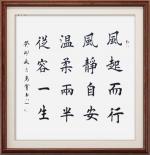 風起而行
風靜自安
溫柔兩半
從容一生